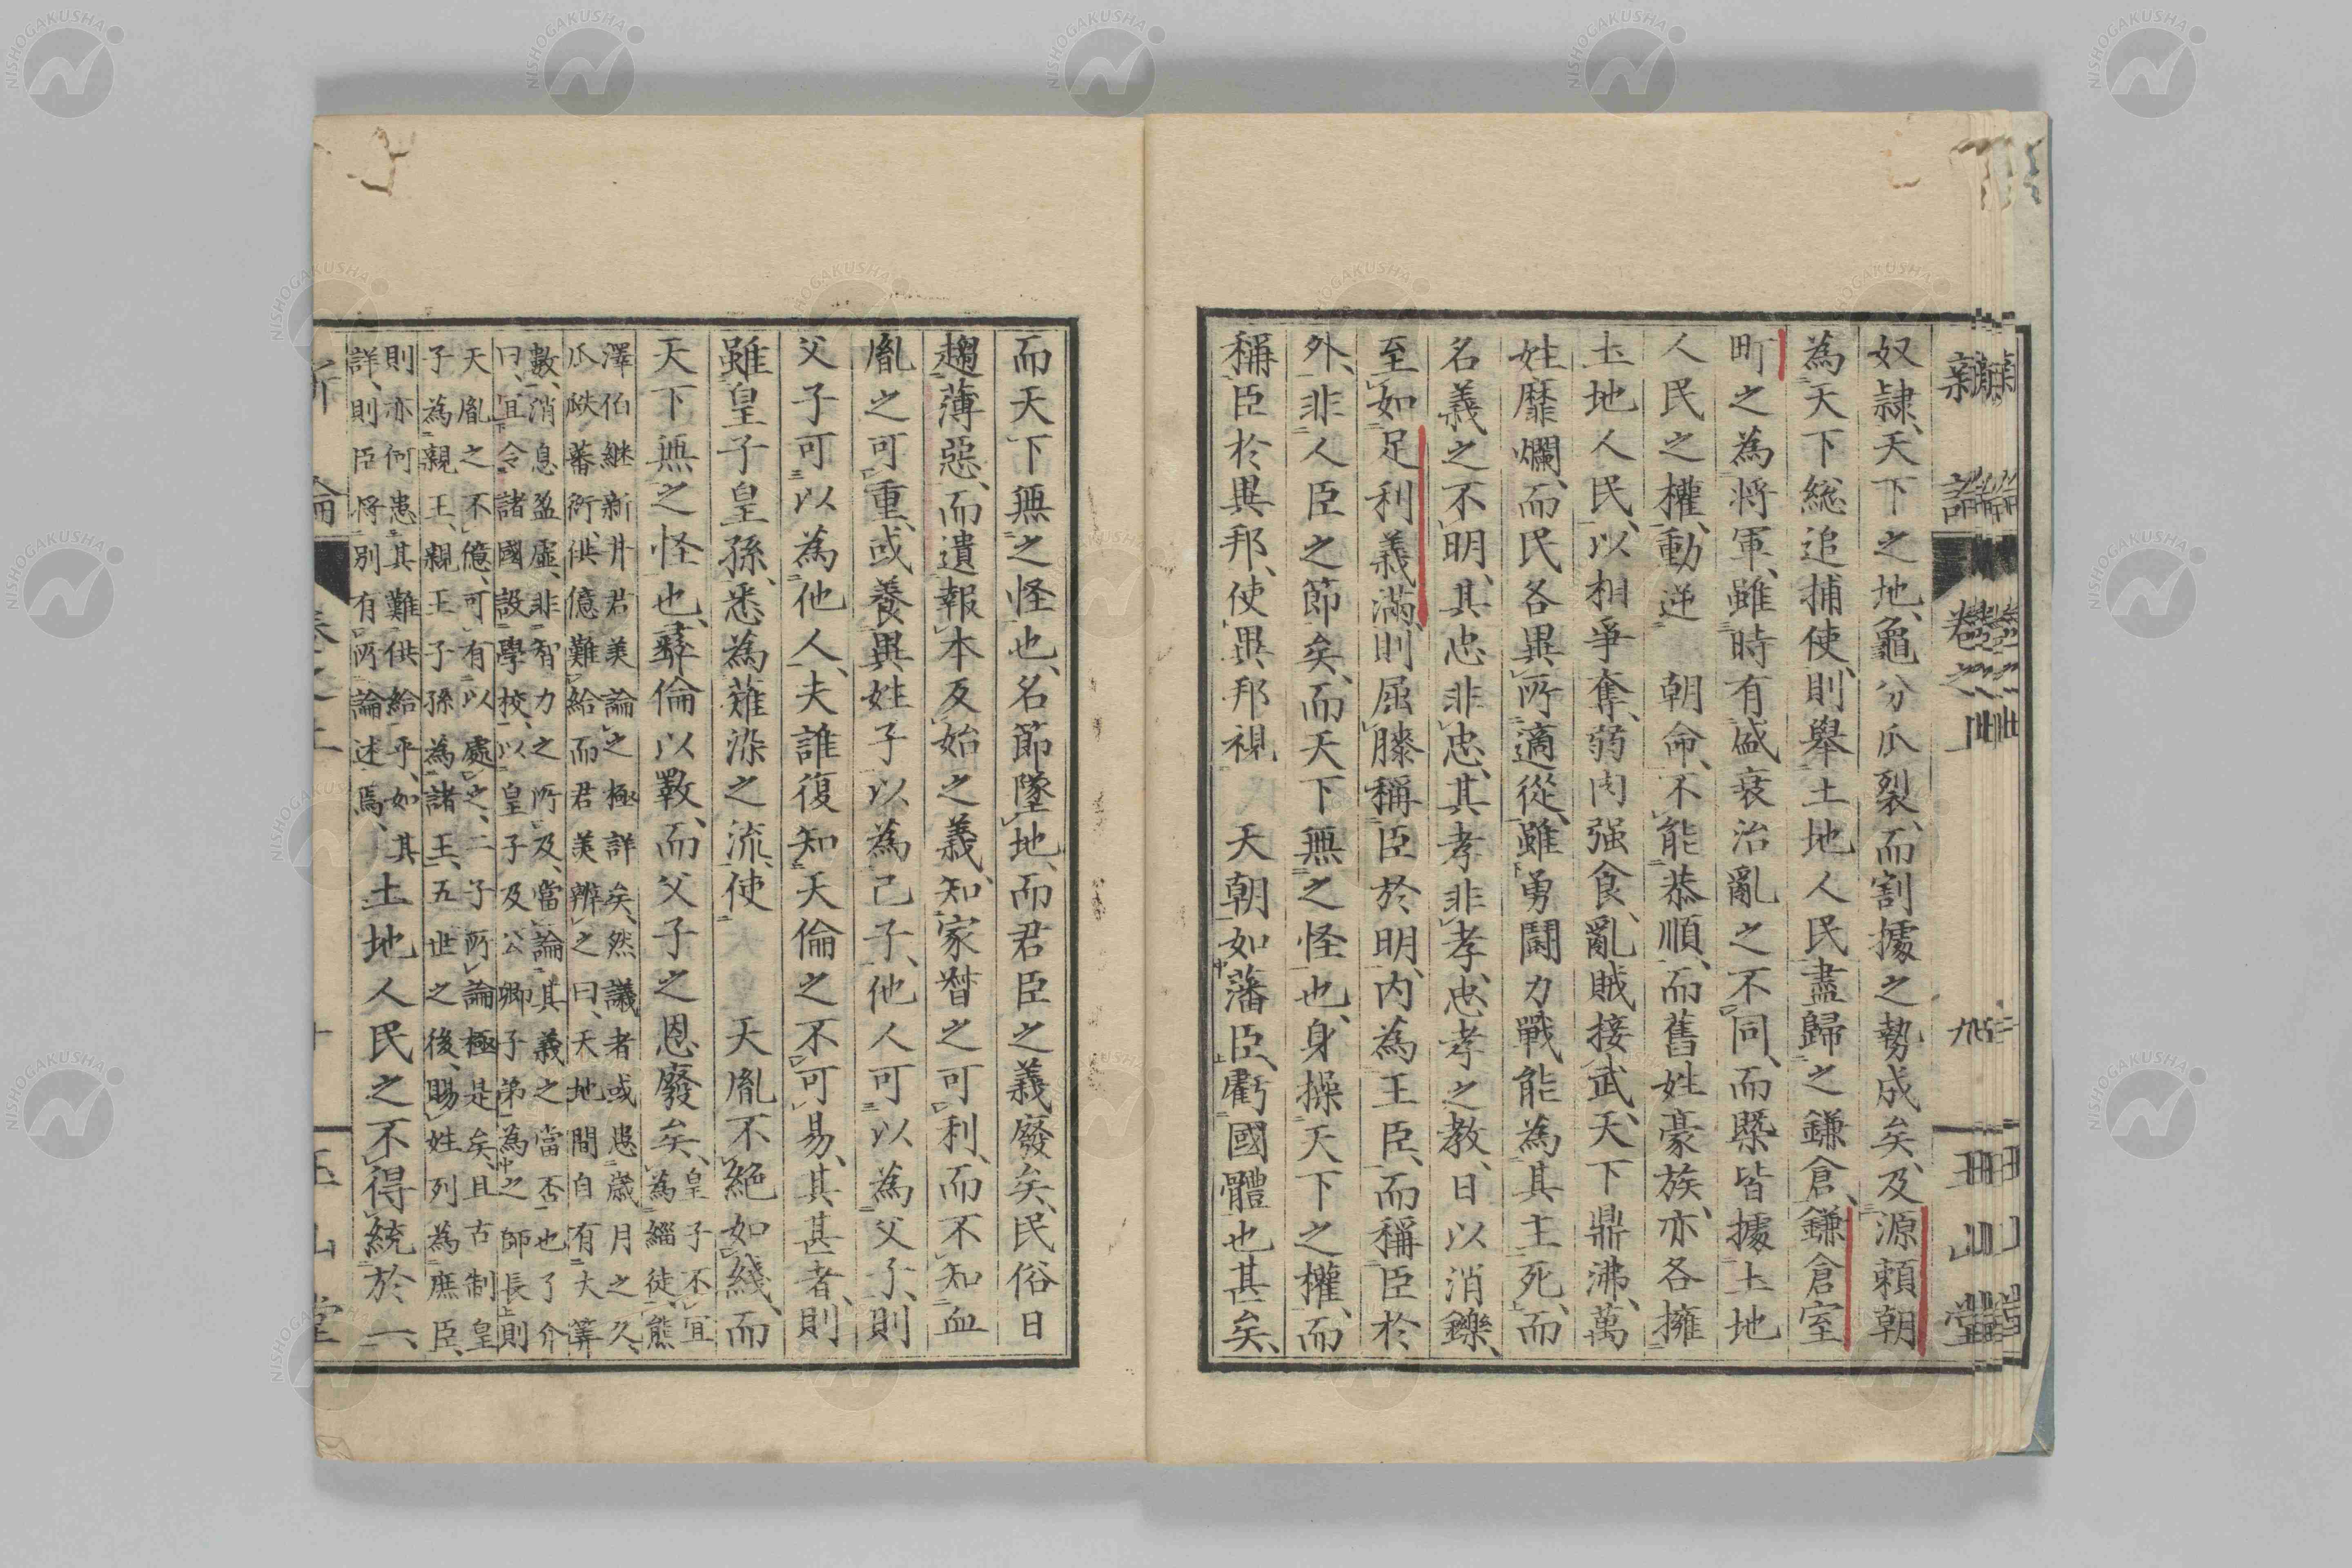 新論 卷之上 九 玉山堂
奴隷、天下之地、龜分瓜裂、而割據之勢成矣、及源賴朝
為天下総追捕使、則舉土地人民盡歸之鎌倉、鎌倉室
町之為將軍、雖時有盛衰治亂之不同、而槩皆據土地
人民之權、動逆 朝命、不能恭順、而舊姓豪族、亦各擁
土地人民、以相爭奪、弱肉强食、亂賊接武、天下鼎沸、萬
姓靡爛、而民各異所適從、雖勇鬪力戰能為其主死、而
名義之不明、其忠非忠、其孝非孝、忠孝之教、日以消鑠、
至如足利義滿、則屈膝稱臣於明、内為王臣、而稱臣於
外、非人臣之節矣、而天下無之怪也、身操天下之權、而
稱臣於異邦、使異邦視 天朝如藩臣、虧國體也甚矣、
而天下無之怪也、名節墜地、而君臣之義廢矣、民俗日
趨薄惡、而遺報本反始之義、知家督之可利、而不知血
胤之可重、或養異姓子以為己子、他人可以為父子、則
父子可以為他人、夫誰復知天倫之不可易、其甚者、則
雖皇子皇孫、悉為薙染之流、使 天胤不絶如綫、而
天下無之怪也、彝倫以斁、而父子之恩廢矣、皇子不宜
為緇徒、熊
澤伯継新井君美論之極詳矣、然議者或患歳月之久、
瓜瓞蕃衍、供億難給、而君美辨之曰、天地間自有大筭
數、消息盈虛、非智力之所及、當論其義之當否也、了介
曰、宜令諸國設學校、以皇子及公卿子弟為之師長、則
天胤之不億、可有以處之、二子所論極是矣、且古制皇
子為親王、親王子孫為諸王、五世之後、賜姓列為庶臣、
則亦何患其難供給乎、如其
詳、則臣将別有所論述焉、土地人民之不得統於一、
玉山堂